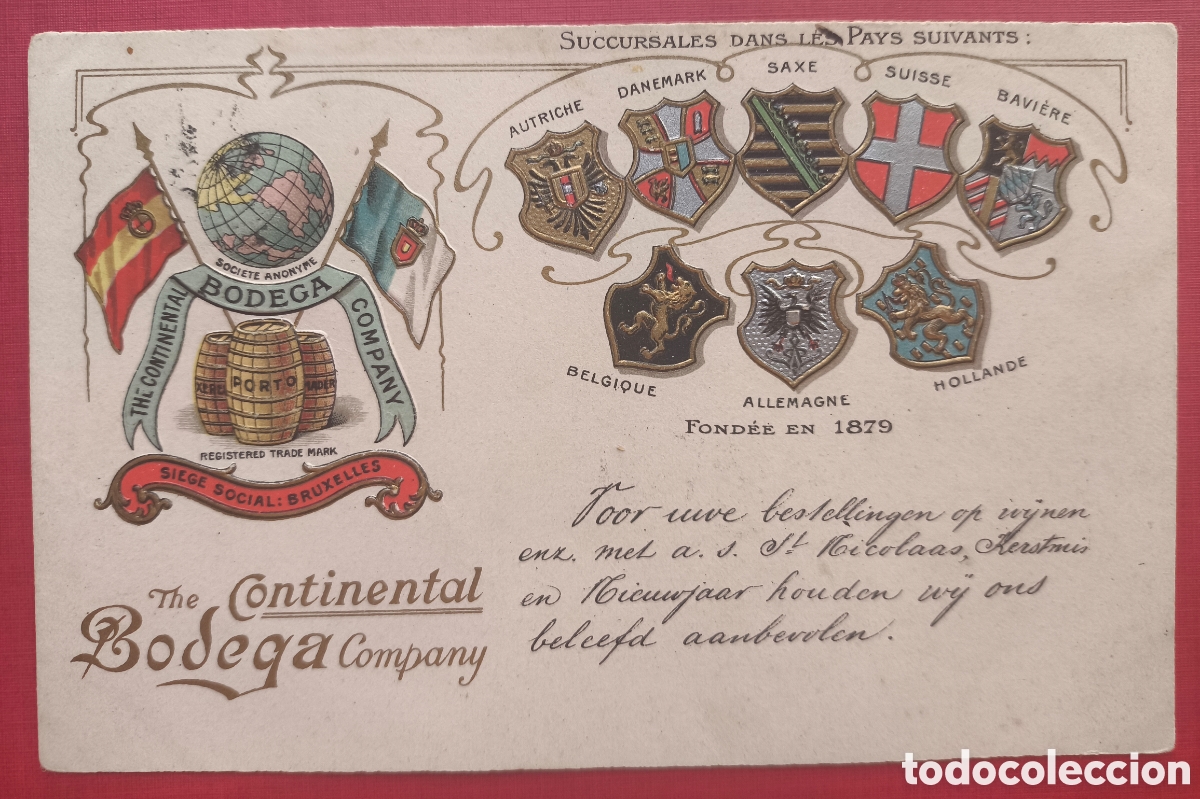 SUCCURSALES DANS LES PAYS SUIVANTS:
AUTRICHE
DANEMARK
SAXE
SUISSE
BAVIÈRE
BELGIQUE
ALLEMAGNE
HOLLANDE
FONDÉE EN 1879
SOCIETE ANONYME
THE CONTINENTAL
BODEGA
COMPANY
PORTO
REGISTERED TRADE MARK
SIEGE SOCIAL: BRUXELLES
The Continental
Bodega Company
Voor uwe bestellingen op wijnen
enz. met a. s. St Nicolaas, Kerstmis
en Nieuwjaar houden wij ons
beleefd aanbevolen.
todocoleccion